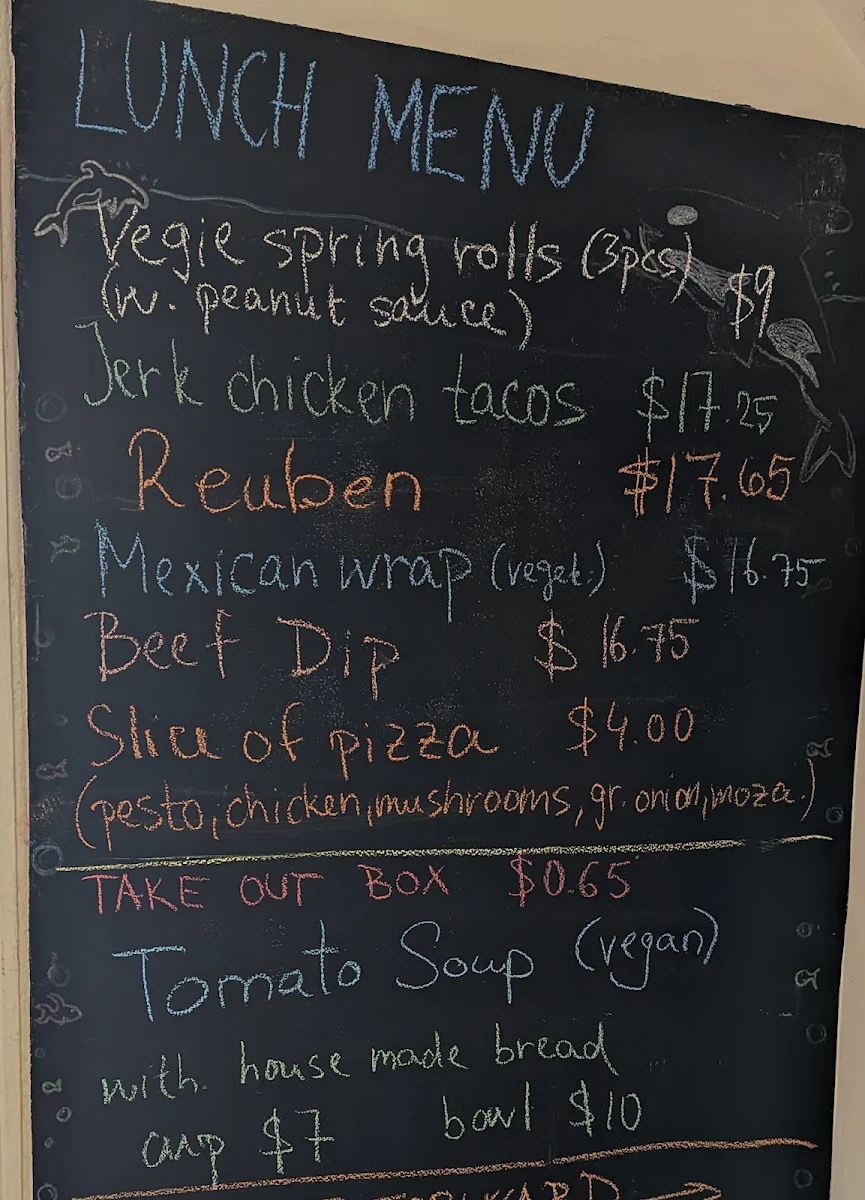 LUNCH MENU
Vegie spring rolls (3pcs)
(w. peanut sauce) $9
Jerk chicken tacos $17.25
Reuben $17.65
Mexican wrap (veget.) $16.75
Beef Dip $16.75
Slice of pizza $4.00
(pesto, chicken, mushrooms, gr. onion, moza.)
TAKE OUT BOX $0.65
Tomato Soup (vegan)
with. house made bread
cup $7 bowl $10